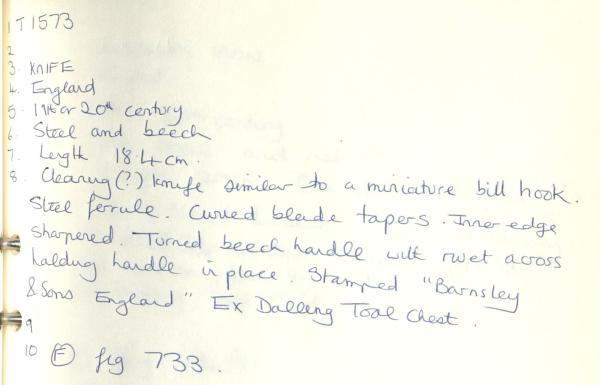 1 T1573
2
3. KNIFE
4. England
5. 19th or 20th century
6. Steel and beech
7. Length 18.4 cm.
8. Clearing (?) knife similar to a miniature bill hook.
Steel ferrule. Curved blade tapers. Inner edge
sharpened. Turned beech handle with rivet across
holding handle in place. Stamped "Barnsley
& Sons England" Ex Dalling Tool Chest.
9
10 (F) fig 733.